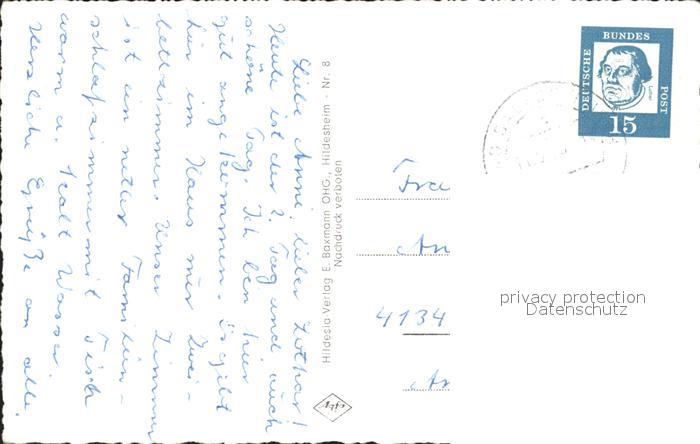 Liebe Anni, lieber Lothar!
Heute ist der 2. Tag und auch
schöne Tag. Ich bin hier
gut angekommen. Es gibt
hier im Haus nur Zwei-
bettzimmer. Unser Zimmer
ist ein nettes Familien-
schlafzimmer mit Tisch
warm u. kalt Wasser.
Herzliche Grüße an alle.
Hildesia-Verlag E. Baxmann OHG., Hildesheim · Nr. 8
Nachdruck verboten
Agfa
DEUTSCHE
BUNDES
POST
Luther
15
Fra
An
4134
privacy protection
Datenschutz